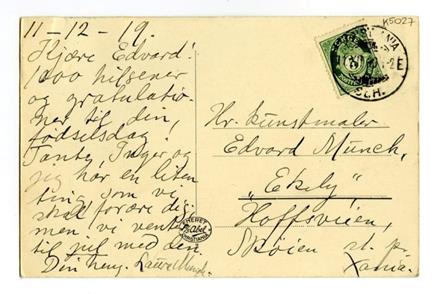 K5027
11-12-19.
Kjære Edvard!
1000 hilsener
og gratulatio-
ner til din,
fødselsdag!
Tante, Inger og
jeg har en liten
ting som vi
skal forære dig.
men vi venter
til jul med den.
Din heng. Laura Munch.
Hr. kunstmaler
Edvard Munch,
"Ekely"
Hoffsveien,
Skøien st. pr.
Xania.
ENERET